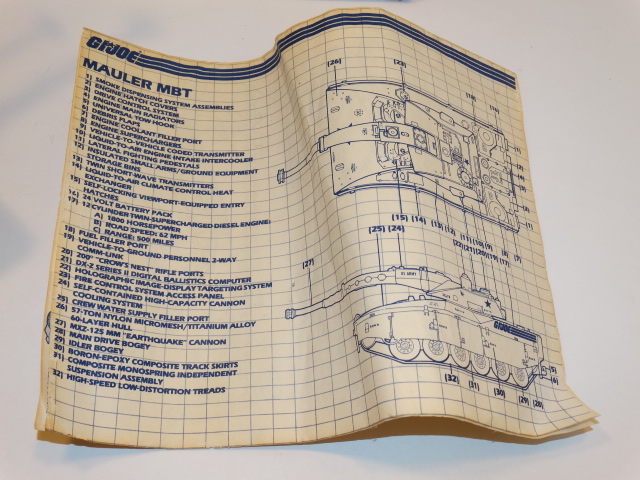 GI JOE
MAULER MBT
1) SMOKE DISPENSING SYSTEM ASSEMBLIES
2) ENGINE HATCH COVERS
3) DRIVE CONTROL SYSTEM
4) ENGINE MAIN RADIATORS
5) UNIVERSAL TOW HOOK
6) DEBRIS PLATE
7) ENGINE COOLANT FILLER PORT
8) ENGINE SUPERCHARGERS
9) VEHICLE-TO-VEHICLE CODED TRANSMITTER
10) LIQUID-TO-AIR ENGINE INTAKE INTERCOOLER
11) LATERAL FIGHTING PEDESTALS
12) INSULATED SMALL ARMS/GROUND EQUIPMENT
STORAGE BINS
13) TWIN SHORT-WAVE TRANSMITTERS
14) LIQUID-TO-AIR CLIMATE CONTROL HEAT
EXCHANGER
15) SELF-LOCKING VIEWPORT-EQUIPPED ENTRY
HATCHES
16) 24 VOLT BATTERY PACK
17) 12 CYLINDER TWIN-SUPERCHARGED DIESEL ENGINE:
A) 1800 HORSEPOWER
B) ROAD SPEED: 62 MPH
C) RANGE: 500 MILES
18) FUEL FILLER PORT
19) VEHICLE-TO-GROUND-PERSONNEL 2-WAY
COMM-LINK
20) 200° "CROW'S NEST" RIFLE PORTS
21) DX-2 SERIES II DIGITAL BALLISTICS COMPUTER
22) HOLOGRAPHIC IMAGE-DISPLAY TARGETING SYSTEM
23) FIRE CONTROL SYSTEM ACCESS PANEL
24) SELF-CONTAINED HIGH-CAPACITY CANNON
COOLING SYSTEM
25) CREW WATER SUPPLY FILLER PORT
26) 57-TON NYLON MICROMESH/TITANIUM ALLOY
60-LAYER HULL
27) MX2-125 MM "EARTHQUAKE" CANNON
28) MAIN DRIVE BOGEY
29) IDLER BOGEY
30) BORON-EPOXY COMPOSITE TRACK SKIRTS
31) COMPOSITE MONOSPRING INDEPENDENT
SUSPENSION ASSEMBLY
32) HIGH-SPEED LOW-DISTORTION TREADS
(26) (23)
(15) (14) (13) (12) (11) (10) (9) (8) (7)
(22) (21) (20) (19) (18) (17)
(25) (24)
(27)
GI JOE
(5)
(6)
(32) (31) (30) (29) (28)